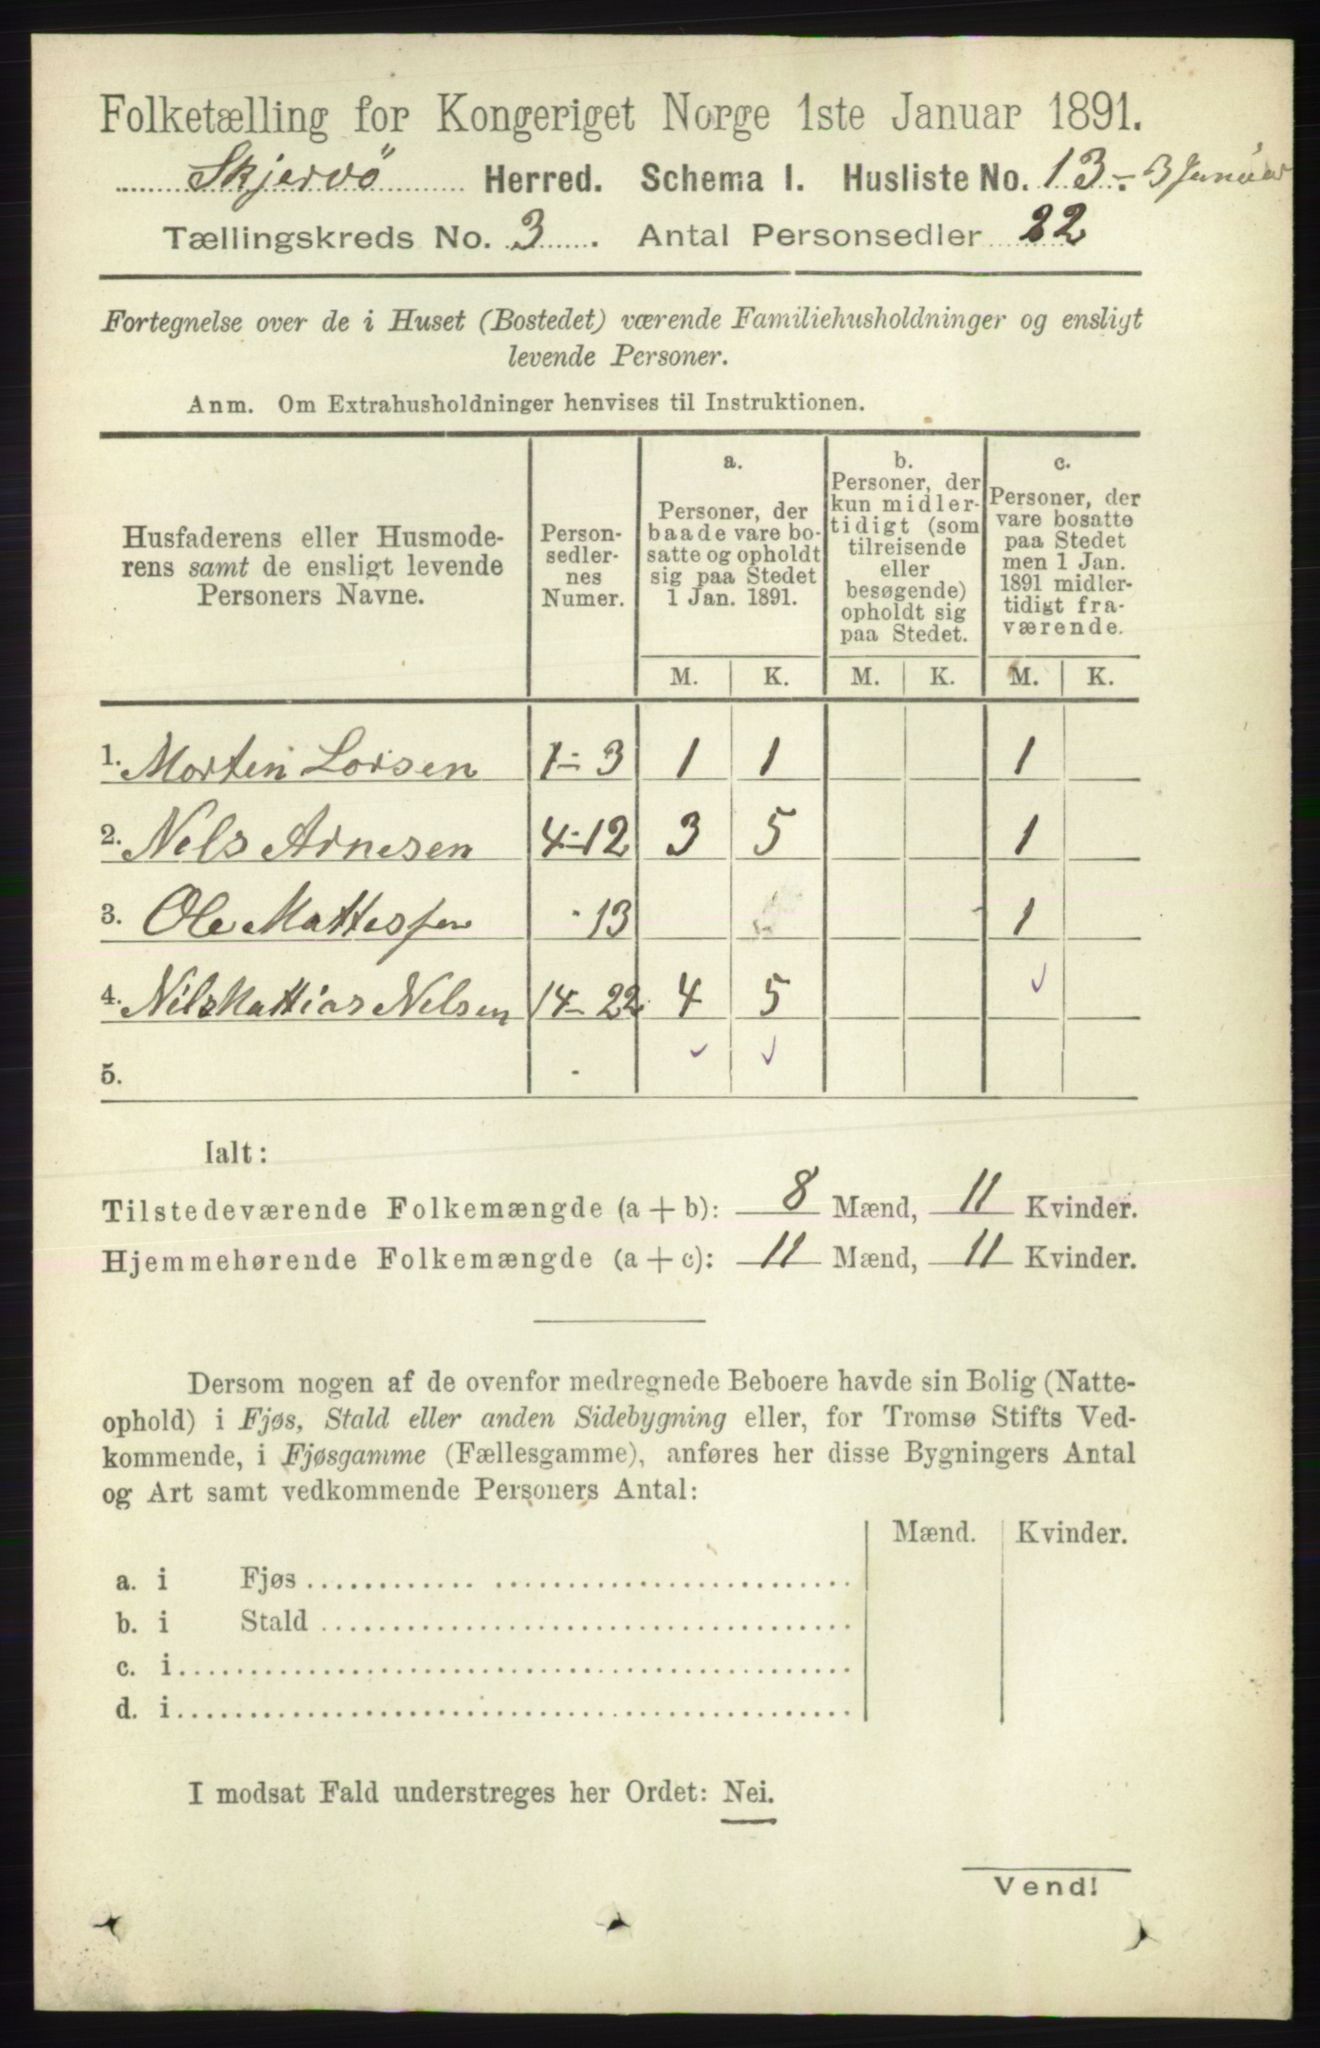 Folketælling for Kongeriget Norge 1ste Januar 1891.
Skjervö Herred. Schema I. Husliste No. 13 - 3 Januar
Tællingskreds No. 3. Antal Personsedler 22
Fortegnelse over de i Huset (Bostedet) værende Familiehusholdninger og ensligt
levende Personer.
Anm. Om Extrahusholdninger henvises til Instruktionen.
Husfaderens eller Husmode-
rens samt de ensligt levende
Personers Navne.
Person-
sedler-
nes
Numer.
a.
Personer, der
baade vare bo-
satte og opholdt
sig paa Stedet
1 Jan. 1891.
b.
Personer, der
kun midler-
tidigt (som
tilreisende
eller
besøgende)
opholdt sig
paa Stedet.
c.
Personer, der
vare bosatte
paa Stedet
men 1 Jan.
1891 midler-
tidigt fra-
værende.
M. K. M. K. M. K.
1. Morten Larsen 1-3 1 1 1
2. Nels Arnesen 4-12 3 5 1
3. Ole Mattessen 13 1
4. Nils Mattias Nelsen 14-22 4 5
5.
Ialt:
Tilstedeværende Folkemængde (a + b): 8 Mænd, 11 Kvinder.
Hjemmehørende Folkemængde (a + c): 11 Mænd, 11 Kvinder.
Dersom nogen af de ovenfor medregnede Beboere havde sin Bolig (Natte-
ophold) i Fjøs, Stald eller anden Sidebygning eller, for Tromsø Stifts Ved-
kommende, i Fjøsgamme (Fællesgamme), anføres her disse Bygningers Antal
og Art samt vedkommende Personers Antal:
Mænd. Kvinder.
a. i Fjøs
b. i Stald
c. i
d. i
I modsat Fald understreges her Ordet: Nei.
Vend!